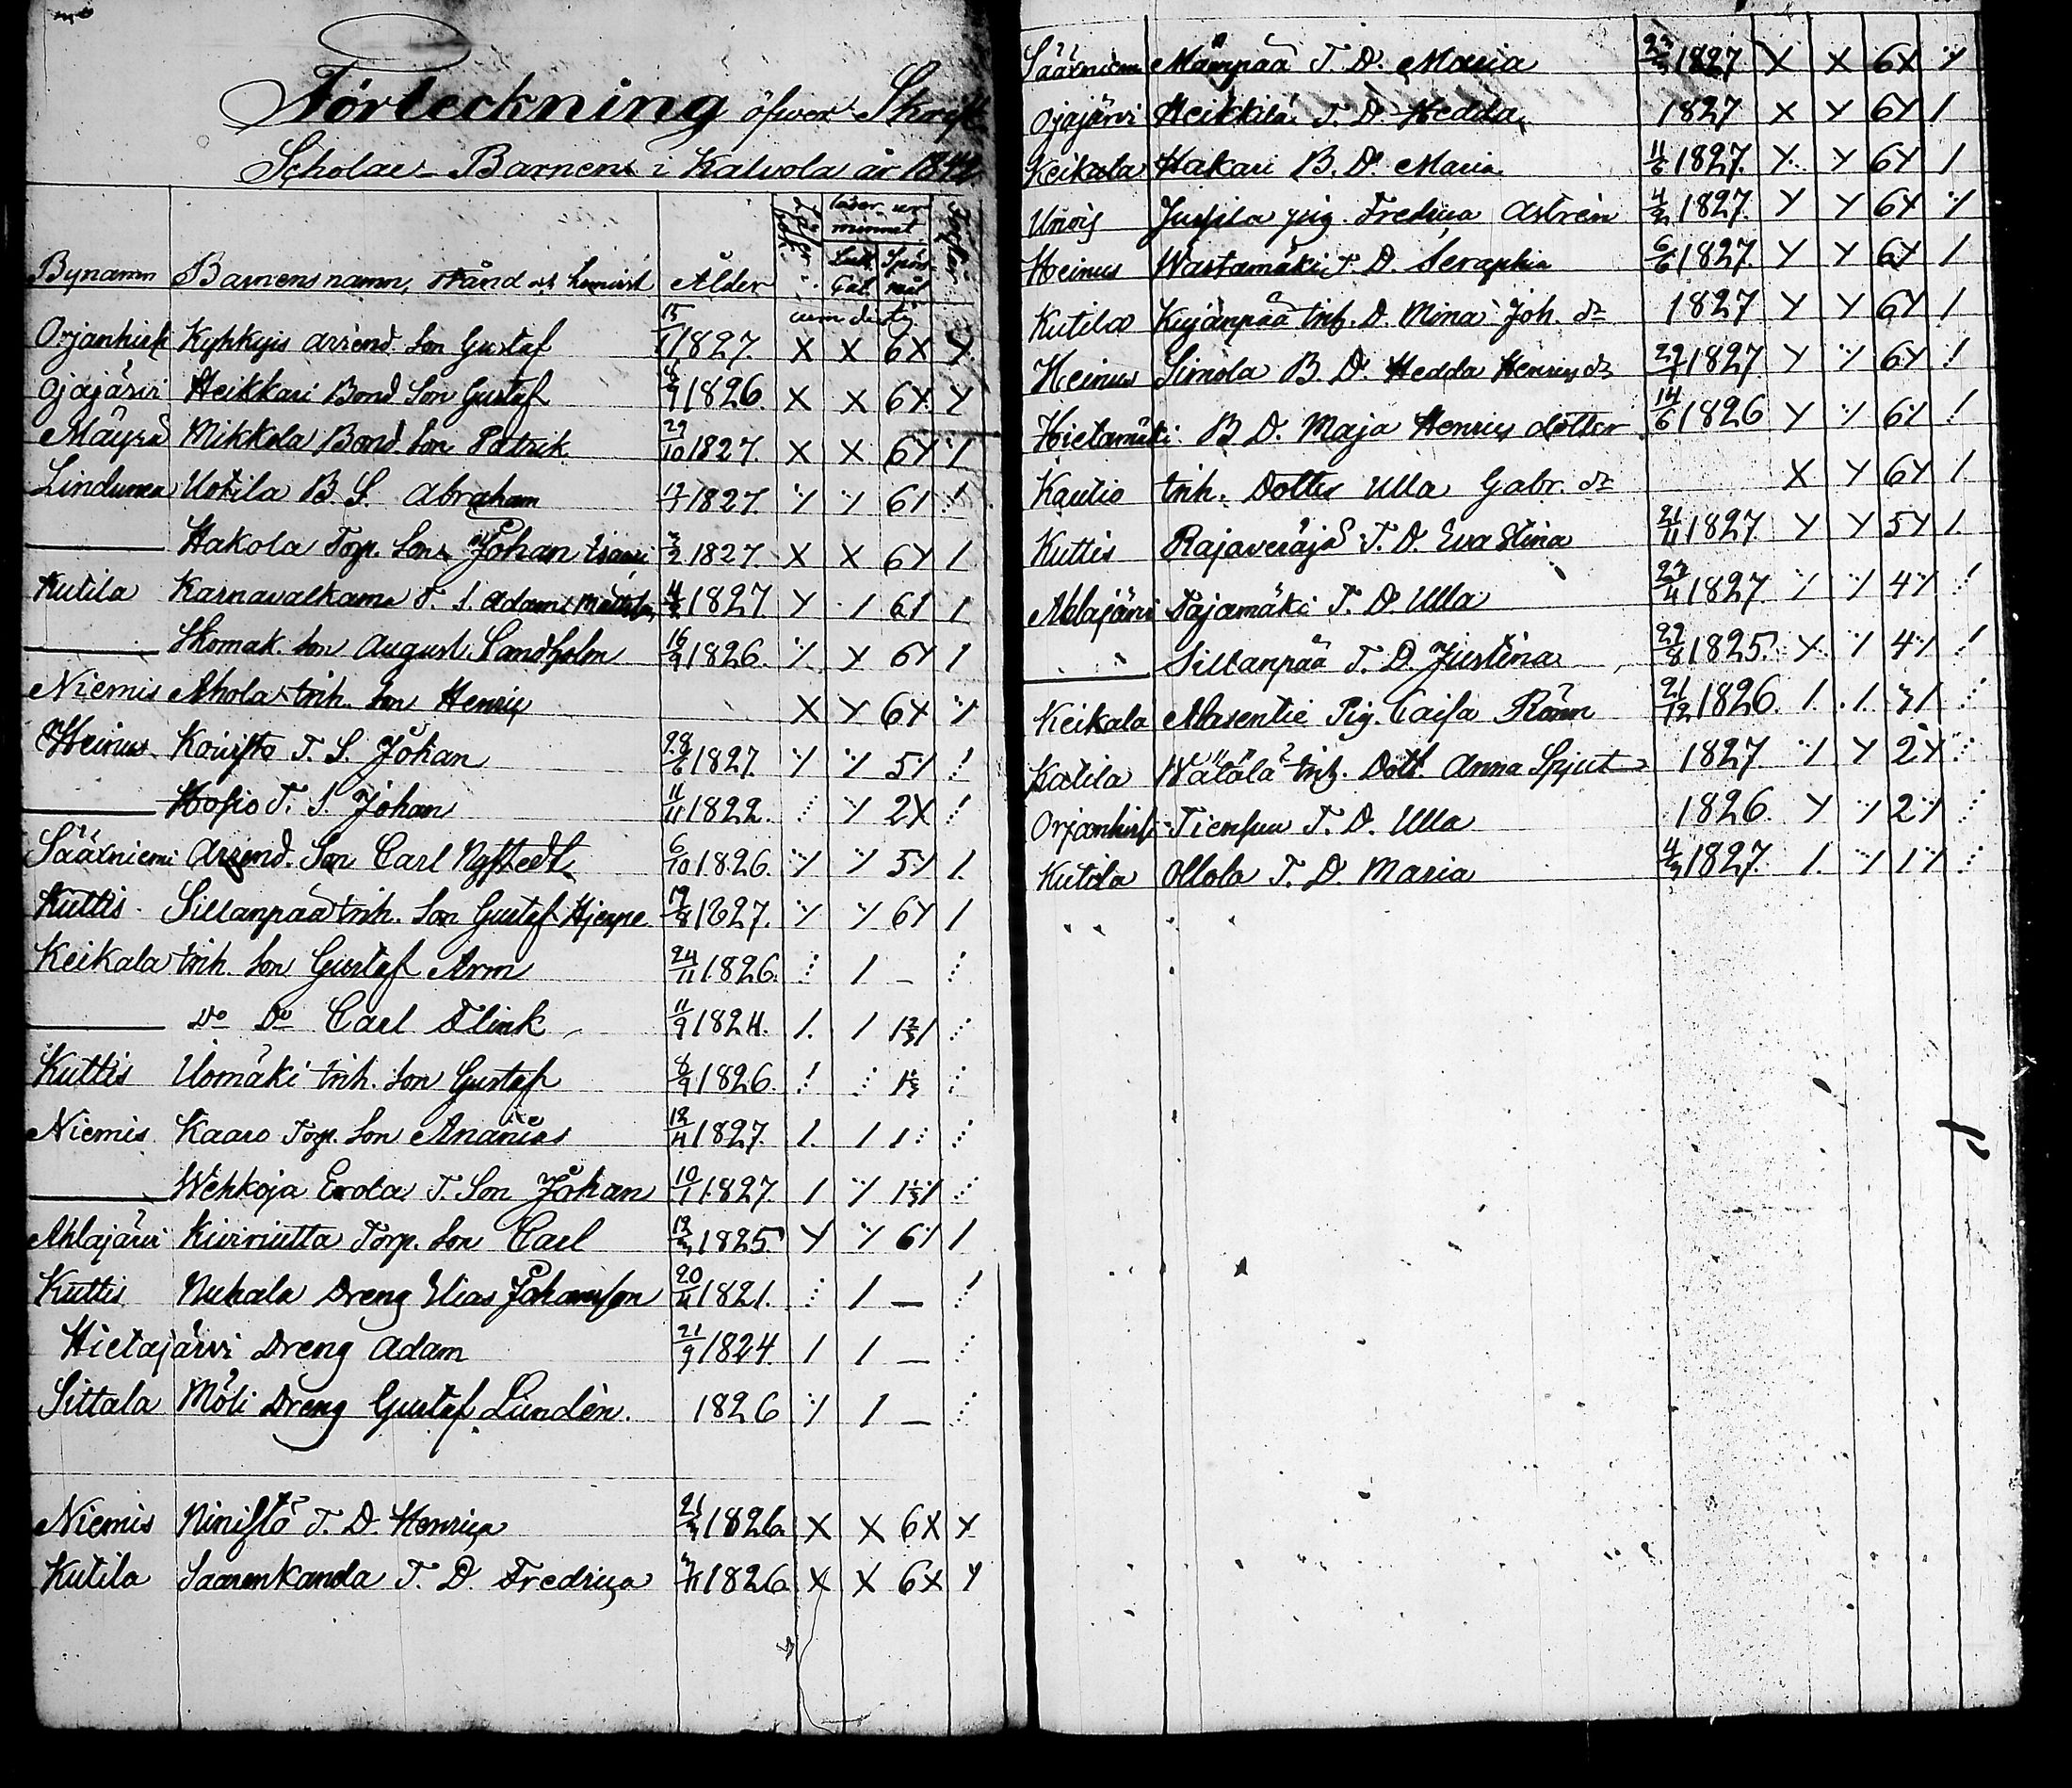 Förteckning öfwer Skrift
Scholae Barnen i Kalvola år 184
Bynamn Barnens namn, stånd och hemvist Ålder Läser i bok. läser ur minnet Luth. Cat. Spörsmål
cum dicta
Orjanhirsi Kyhkyis arrend. Son Gustaf 15/11 1827. X X 6X Y
Ojajärvi Heikkari Bond Son Gustaf 8/9 1826. X X 6Y. Y
Mäyrä Mikkola Bond. Son Patrik 29/10 1827. X X 6Y
Lindumea Uotila B. S. Abraham 1827.
Hakola Torp. Son Johan Esaias 3/2 1827. X X 6Y /
Kutila Karnavalkama T. S. Adam 1827 Y
Skomak. Son August Sandholm 16/9 1826. Y 6Y /
Niemis Ahola inh. Son Henric X Y 6X
Heinus Koivisto T. S. Johan 28/6 1827. 5
Kospio T. S. Johan 11/11 1822. 2X
Sääxniemi Arrend. Son Carl Nystedt 6/10 1826. 5 /.
Kuttis Sillanpää inh. Son Gustaf Hjerpe 19/8 1827. 6Y /
Keikala inh. Son Gustaf Arm 24/11 1826. / –
Do Do Carl Flink 11/9 1824. /. /
Kuttis Uomäki inh. Son Gustaf 8/9 1826.
Niemis Kaaro Torp. Son Ananias 1827. /. /
Wehkoja Erola T. Son Johan 10/1 1827. /
Ahlajärvi Kivirintta Torp. Son Carl 1825. Y 6 /
Kuttis Nuhala Dreng Elias Johansson 1821. / –
Hietajärvi Dreng Adam 21/9 1824. / / –
Sittala Möli Dreng Gustaf Lundén. 1826 / –
Niemis Ninistö T. D. Henrica 21/3 1826 X X 6X Y
Kutila Saarenkanda T. D. Fredrica 3/11 1826 X X 6X Y
Sääxniemi Mäenpää T. D. Maria 23/3 1827 X X 6X
Ojajärvi Heikkilä T. D. Hedda 1827 X Y 6Y /
Keikala Hakari B. D. Maria 11/6 1827. Y Y 6Y /
Unois Jussila pig. Fredrica Astrén 1827. Y Y 6Y
Heinus Wastamäki T. D. Seraphia 6/6 1827. Y Y 6Y /
Kutila Kujänpää inh. D. Mina Joh. dr 1827 Y Y 6Y /
Heinus Simola B. D. Hedda Henrics dr 1827. Y 6Y
Hietamäki B D. Maja Henrics dotter 14/6 1826 Y 6
Kautio inh. Dotter Ulla Gabr. dr X Y 6Y /.
Kuttis Rajaveräjä T. D. Eva Stina 21/11 1827 Y Y 5Y /.
Ahlajärvi Pajamäki T. D. Ulla 1827. 4
Sillanpää T. D. Justina 1825. 4
Keikala Alasentie Pig. Caisa Rönn 21/12 1826. /. /.
Katila Wälälä inh. Dott. Anna Spjut 1827 Y 2Y
Orjanhirsi Tiensuu T. D. Ulla 1826. Y 2
Kutila Ollola T. D. Maria 4/3 1827. /.